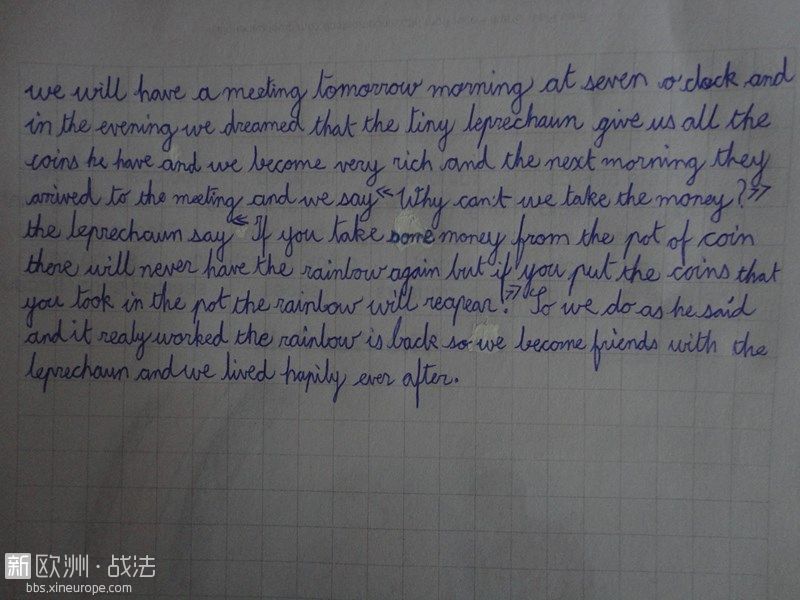 we will have a meeting tomorrow morning at seven o'clock and
in the evening we dreamed that the tiny leprechaun give us all the
coins he have and we become very rich and the next morning they
arrived to the meeting and we say « Why can't we take the money? »
the leprechaun say « If you take some money from the pot of coin
there will never have the rainbow again but if you put the coins that
you took in the pot the rainbow will reapear! » So we do as he said
and it realy worked the rainbow is back so we become friends with the
leprechaun and we lived hapily ever after.
新欧洲·战法
bbs.xineurope.com